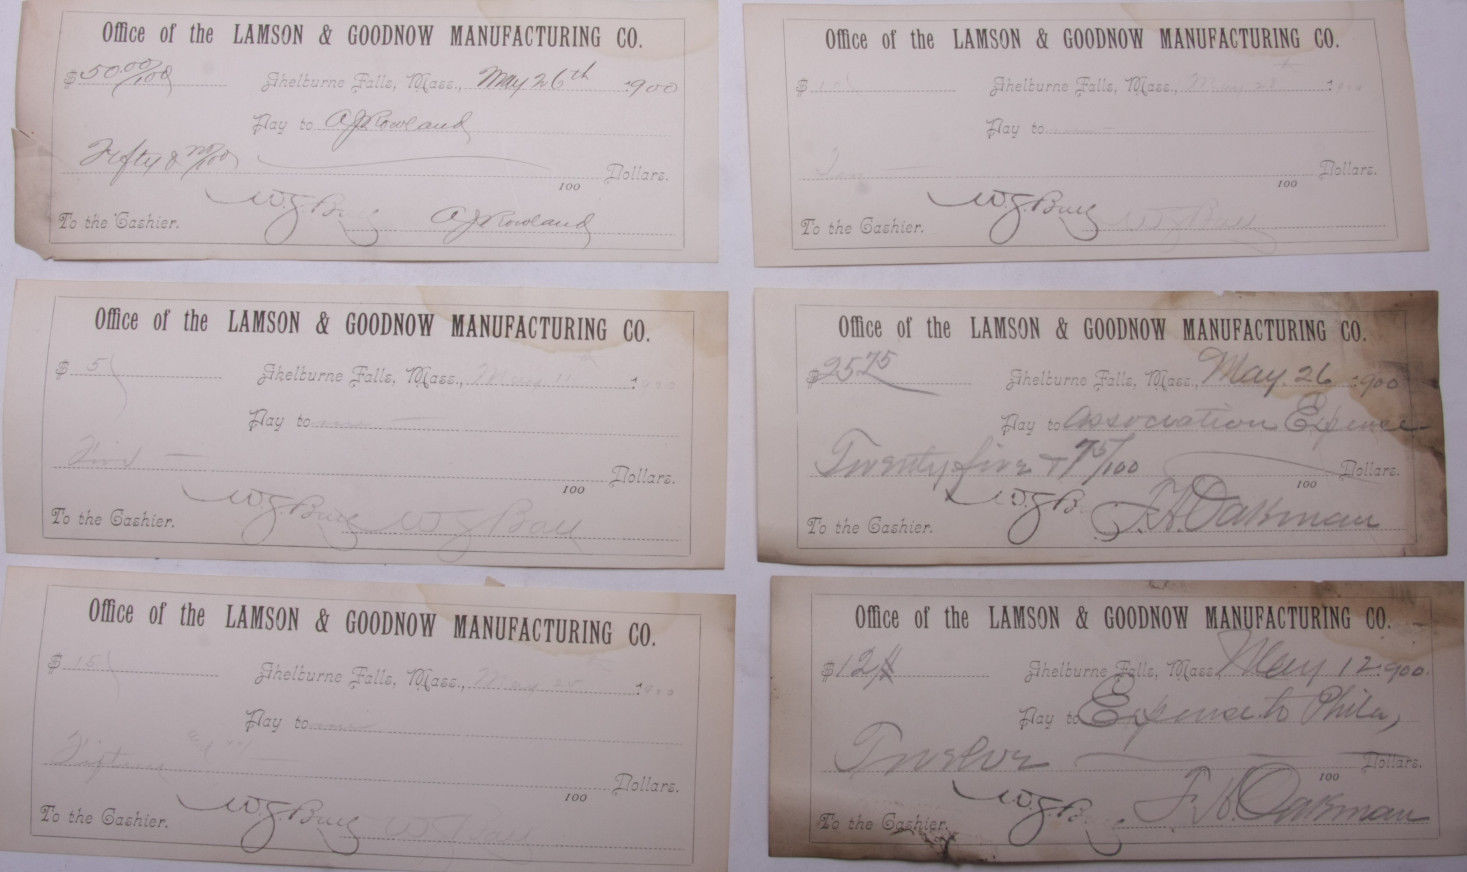 Office of the LAMSON & GOODNOW MANUFACTURING CO.
$ 50.00/100 Shelburne Falls, Mass., May 26th 1900
Pay to A J Rowland
Fifty & no/100
100 Dollars.
To the Cashier. A J Rowland
Office of the LAMSON & GOODNOW MANUFACTURING CO.
$ Shelburne Falls, Mass., May 1900
Pay to
100 Dollars.
To the Cashier.
Office of the LAMSON & GOODNOW MANUFACTURING CO.
$ 5 Shelburne Falls, Mass., May 11 1900
Pay to
Five
100 Dollars.
To the Cashier.
Office of the LAMSON & GOODNOW MANUFACTURING CO.
$25 75 Shelburne Falls, Mass., May. 26 1900
Pay to Association Expense
Twenty five + 75/100
100 Dollars.
To the Cashier. F. H. Oakman
Office of the LAMSON & GOODNOW MANUFACTURING CO.
$ 15 Shelburne Falls, Mass., May 1900
Pay to
Fifteen
100 Dollars.
To the Cashier.
Office of the LAMSON & GOODNOW MANUFACTURING CO.
$12 Shelburne Falls, Mass., May 12 1900.
Pay to Expense to Phila,
Twelve
100 Dollars.
To the Cashier. F. H. Oakman